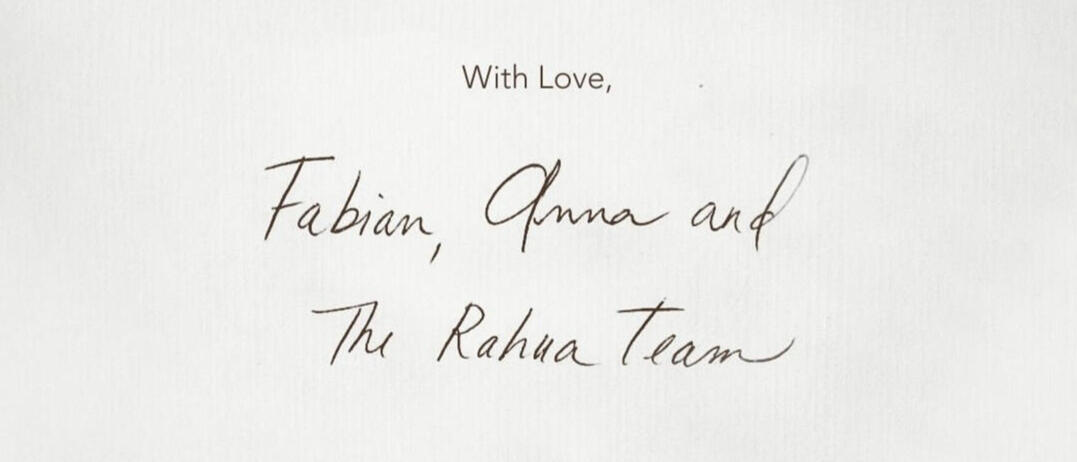 With Love,
Fabian, Anna and
The Rahua Team